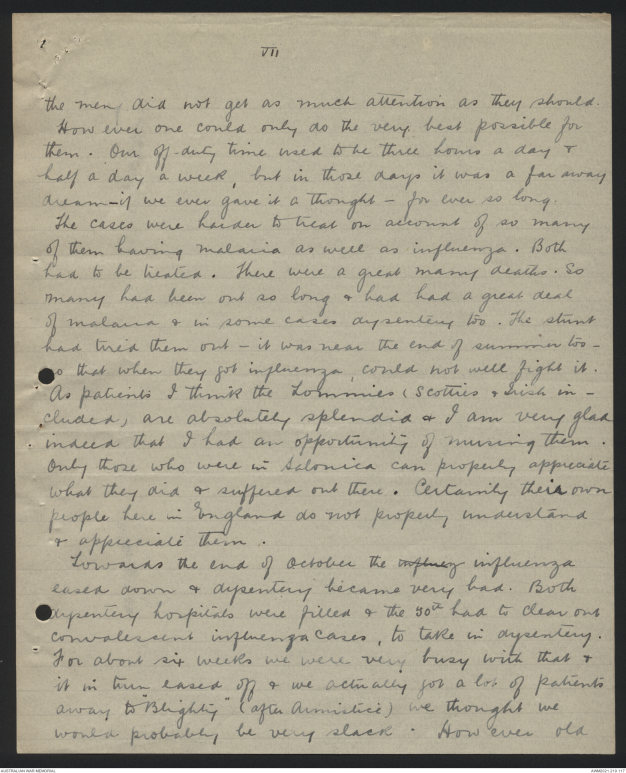 VII
the men did not get as much attention as they should.
How ever one could only do the very best possible for
them. Our off-duty time used to be three hours a day &
half a day a week, but in those days it was a far away
dream - if we ever gave it a thought - for ever so long.
The cases were harder to treat on account of so many
of them having malaria as well as influenza. Both
had to be treated. There were a great many deaths. So
many had been out so long & had had a great deal
of malaria & in some cases dysentery too. The stunt
had tired them out - it was near the end of summer too -
so that when they got influenza, could not well fight it.
As patients I think the Tommies (Scotties & Irish in-
cluded) are absolutely splendid & I am very glad
indeed that I had an opportunity of nursing them.
Only those who were in Salonica can properly appreciate
what they did & suffered out there. Certainly their own
people here in England do not properly understand
& appreciate them.
Towards the end of October the influenz influenza
eased down & dysentery became very bad. Both
dysentery hospitals were filled & the 50th had to clear out
convalescent influenza cases, to take in dysentery.
For about six weeks we were very busy with that &
it in turn eased off & we actually got a lot of patients
away to "Blighty" (after Armistice) we thought we
would probably be very slack. How ever old
AUSTRALIAN WAR MEMORIAL
AWM2021.219.117